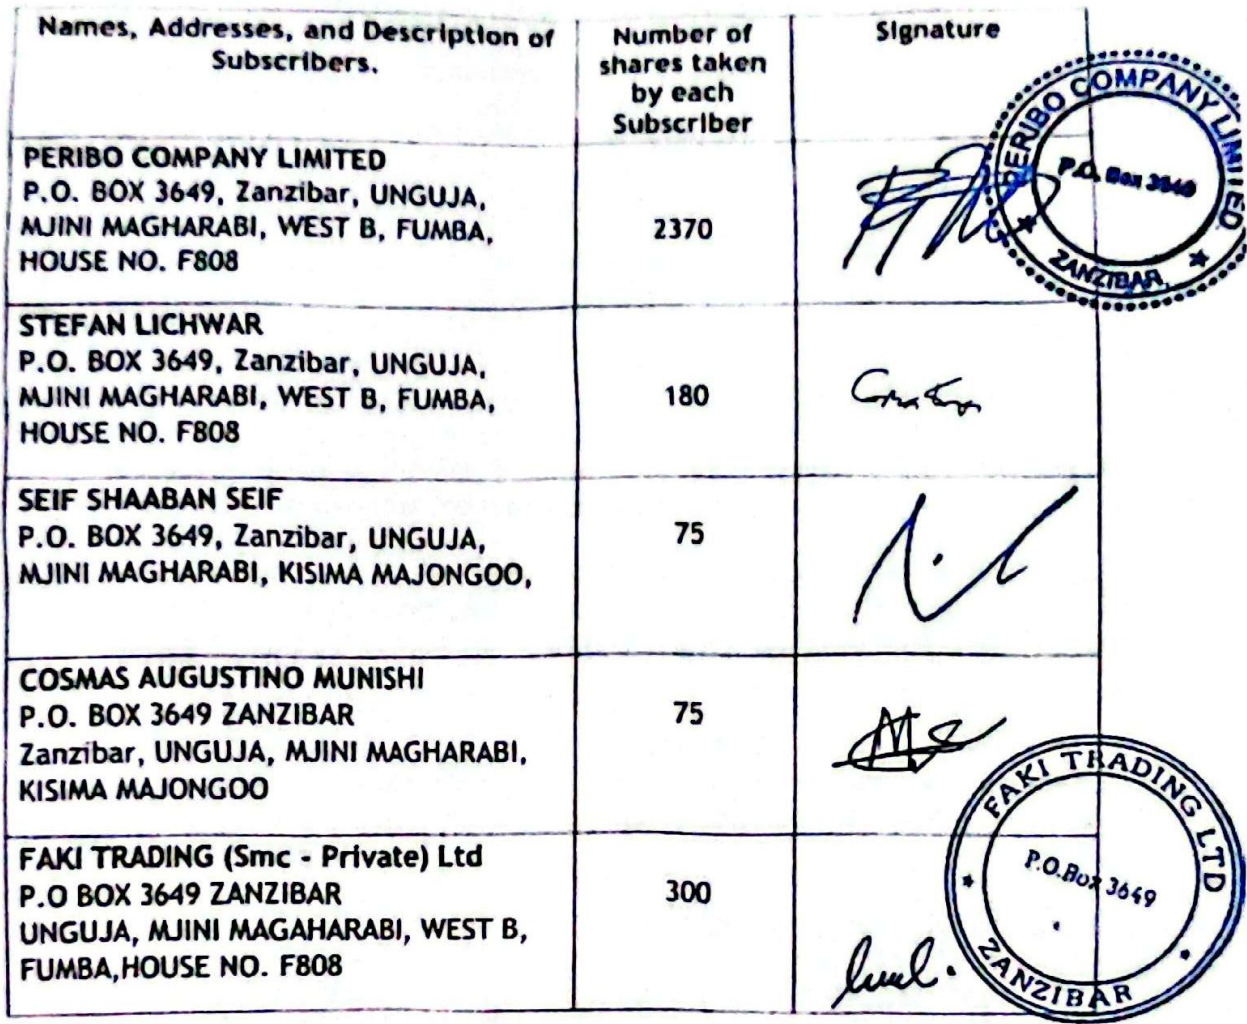 Names, Addresses, and Description of
Subscribers.
Number of
shares taken
by each
Subscriber
Signature
PERIBO COMPANY LIMITED
P.O. BOX 3649, Zanzibar, UNGUJA,
MJINI MAGHARABI, WEST B, FUMBA,
HOUSE NO. F808
2370
PERIBO COMPANY LIMITED
P.O. Box 3649
ZANZIBAR
STEFAN LICHWAR
P.O. BOX 3649, Zanzibar, UNGUJA,
MJINI MAGHARABI, WEST B, FUMBA,
HOUSE NO. F808
180
SEIF SHAABAN SEIF
P.O. BOX 3649, Zanzibar, UNGUJA,
MJINI MAGHARABI, KISIMA MAJONGOO,
75
COSMAS AUGUSTINO MUNISHI
P.O. BOX 3649 ZANZIBAR
Zanzibar, UNGUJA, MJINI MAGHARABI,
KISIMA MAJONGOO
75
FAKI TRADING (Smc - Private) Ltd
P.O BOX 3649 ZANZIBAR
UNGUJA, MJINI MAGAHARABI, WEST B,
FUMBA,HOUSE NO. F808
300
FAKI TRADING LTD
P.O.Box 3649
ZANZIBAR